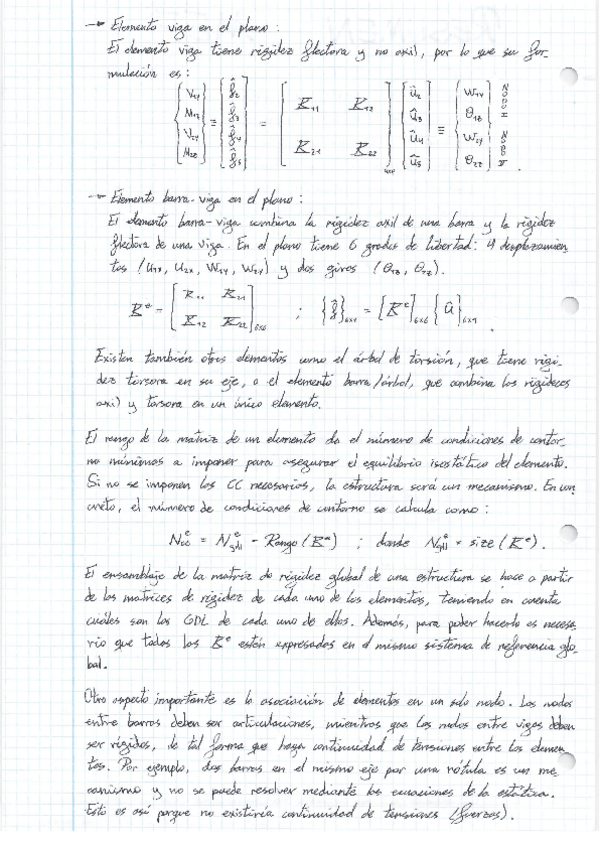 → Elemento viga en el plano:
El elemento viga tiene rigidez flectora y no axil, por lo que su for-
mulación es:
{V₁y M₁z V₂y M₂z} ≡ {f̂₂ f̂₃ f̂₄ f̂₅} = [K₁₁ K₁₂ K₂₁ K₂₂]₄ₓ₄ {û₂ û₃ û₄ û₅} ≡ {W₁y θ₁z W₂y θ₂z} NODO I NODO II.
→ Elemento barra-viga en el plano:
El elemento barra-viga combina la rigidez axil de una barra y la rigidez
flectora de una viga. En el plano tiene 6 grados de libertad: 4 desplazamien-
tos (U₁x, U₂x, W₁y, W₂y) y dos giros (θ₁z, θ₂z).
Kᵉ = [K₁₁ K₂₁ K₁₂ K₂₂]₆ₓ₆ ; {f̂}₆ₓ₁ = [Kᵉ]₆ₓ₆ {û}₆ₓ₁.
Existen también otros elementos como el árbol de torsión, que tiene rigi-
dez torsora en su eje, o el elemento barra/árbol, que combina las rigideces
axil y torsora en un único elemento.
El rango de la matriz de un elemento da el número de condiciones de contor-
no mínimas a imponer para asegurar el equilibrio isostático del elemento.
Si no se imponen las CC necesarias, la estructura será un mecanismo. En con-
creto, el número de condiciones de contorno se calcula como:
Nᵉcc = Nᵉgdl - Rango (Kᵉ) ; donde Nᵉgdl = size (Kᵉ).
El ensamblaje de la matriz de rigidez global de una estructura se hace a partir
de las matrices de rigidez de cada uno de los elementos, teniendo en cuenta
cuáles son los GDL de cada uno de ellos. Además, para poder hacerlo es necesa-
rio que todas las Kᵉ estén expresadas en el mismo sistema de referencia glo-
bal.
Otro aspecto importante es la asociación de elementos en un solo nodo. Los nodos
entre barras deben ser articulaciones, mientras que los nudos entre vigas deben
ser rígidos, de tal forma que haya continuidad de tensiones entre los elemen-
tos. Por ejemplo, dos barras en el mismo eje por una rótula es un me-
canismo y no se puede resolver mediante las ecuaciones de la estática.
Esto es así porque no existiría continuidad de tensiones (fuerzas).